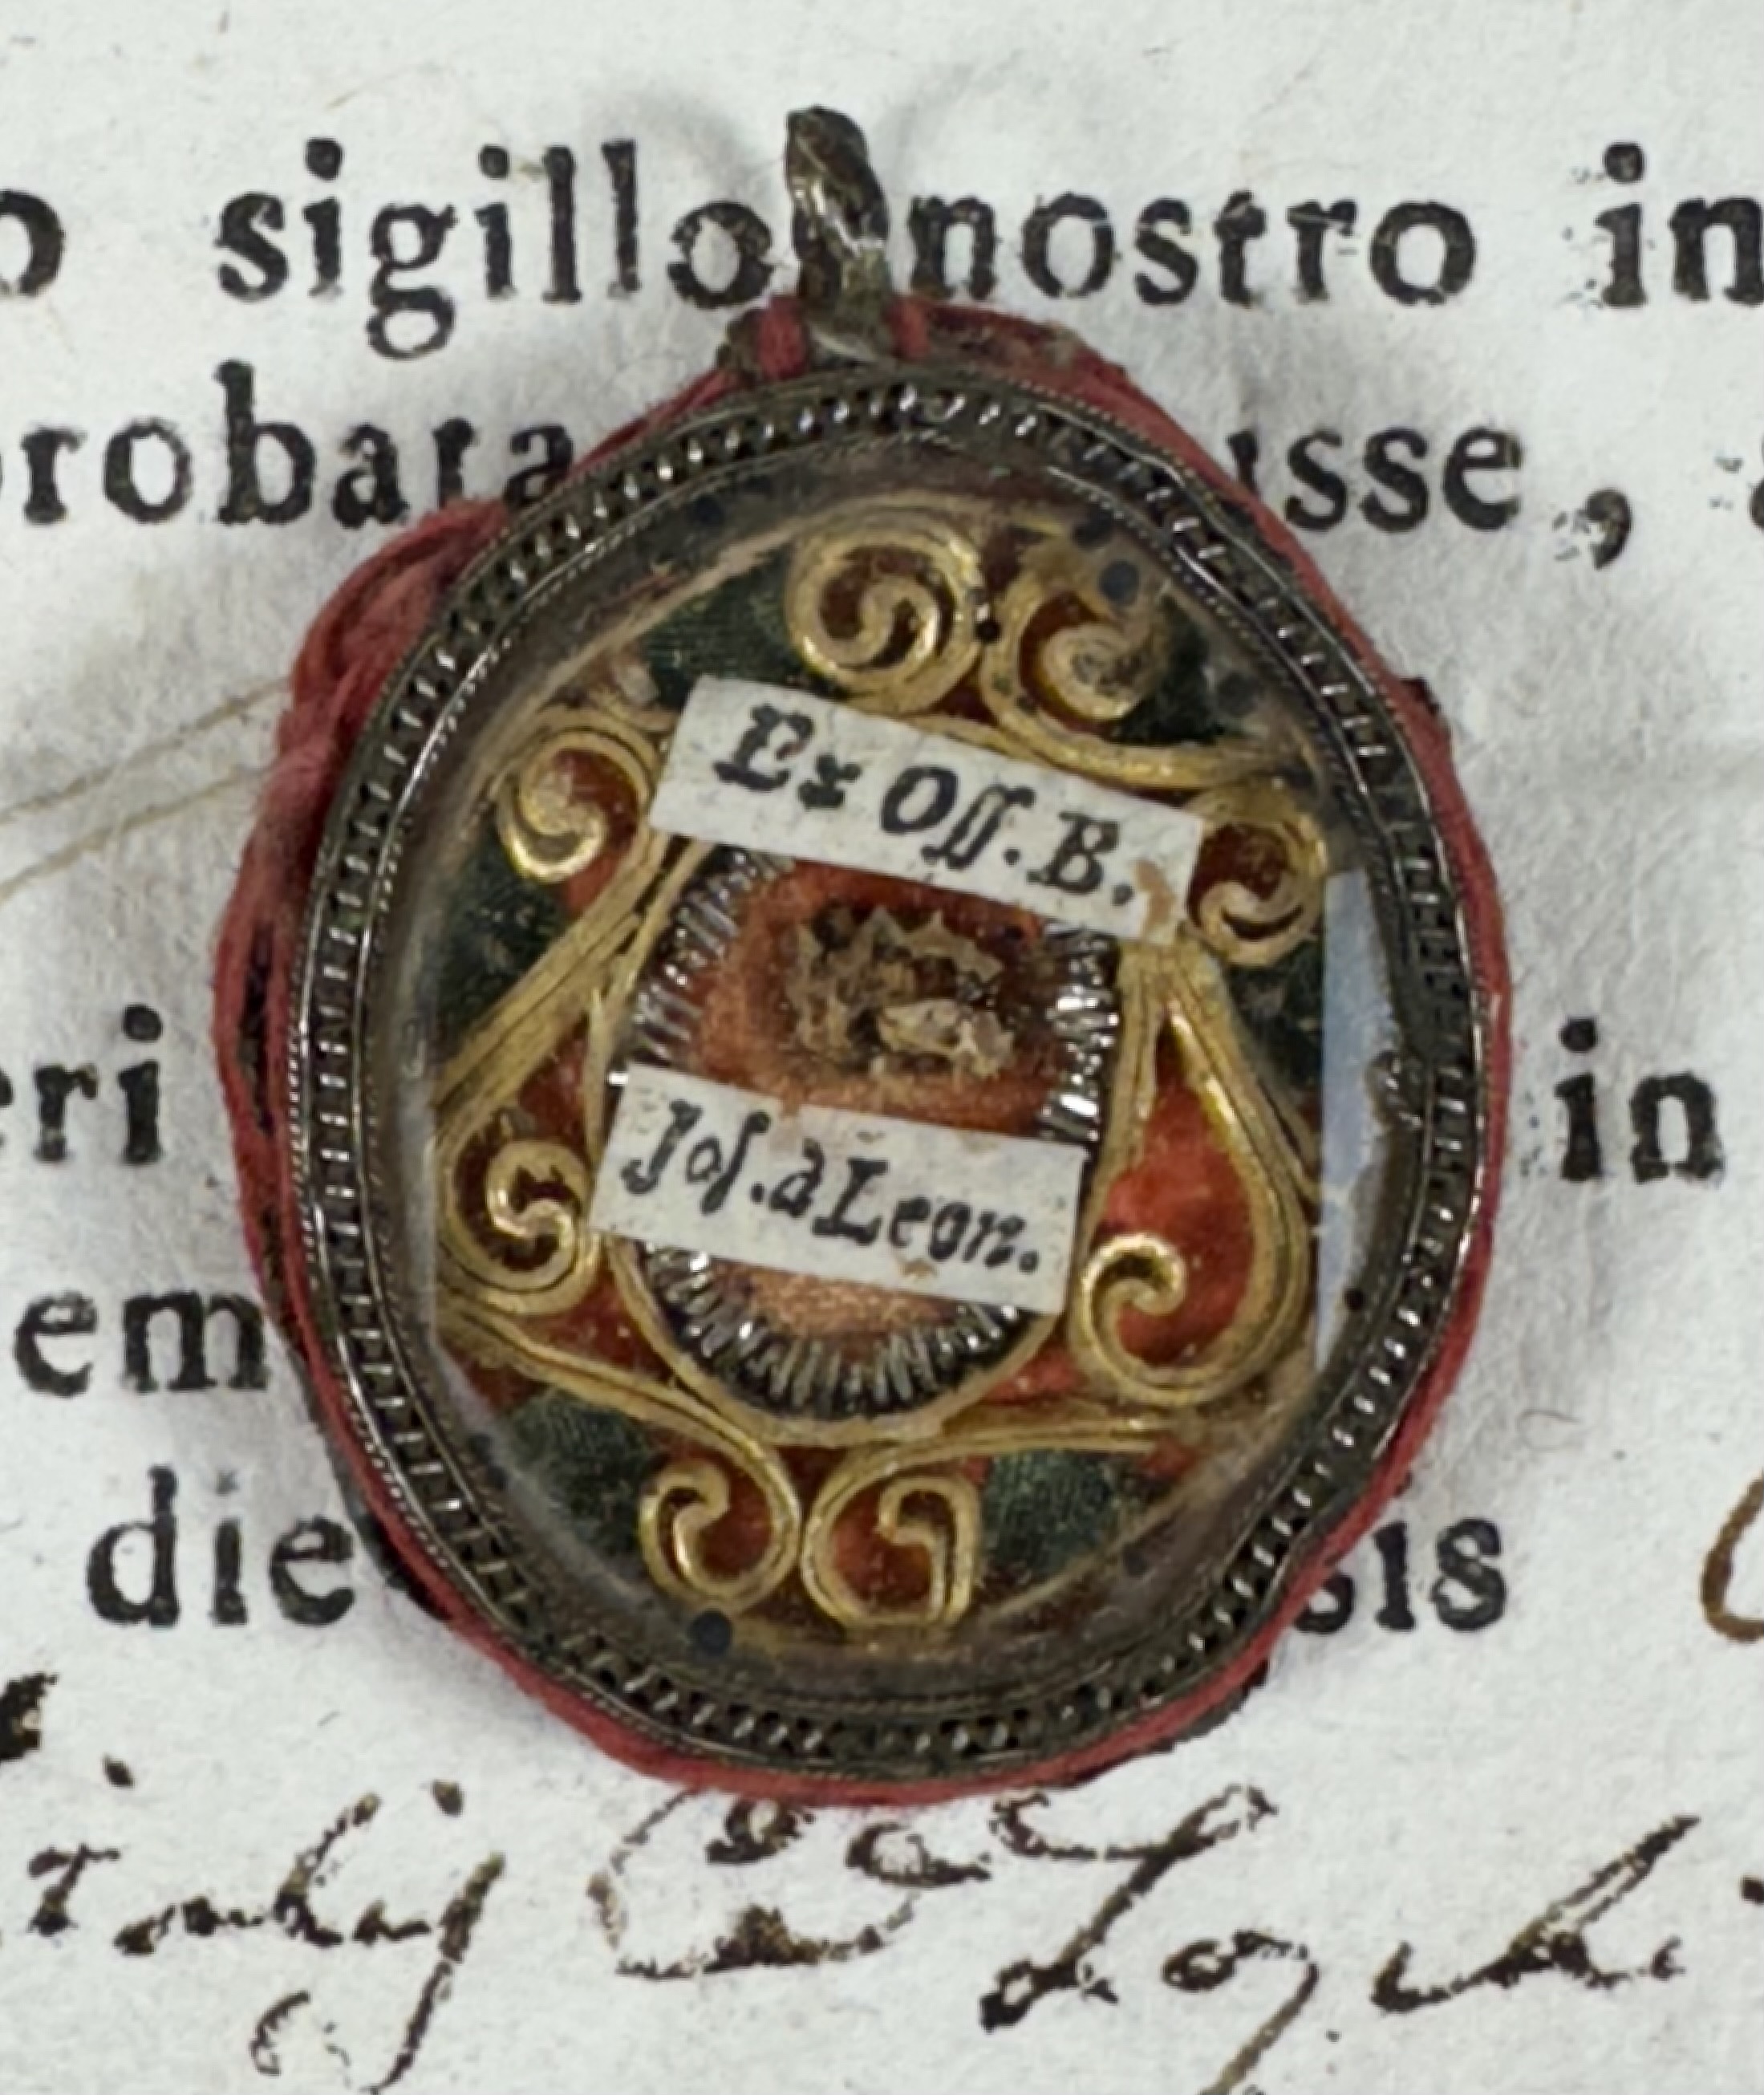 o sigillo nostro in
robata usse,
Ex Oſſ. B.
Joſ. a Leon.
eri in
em
die sis